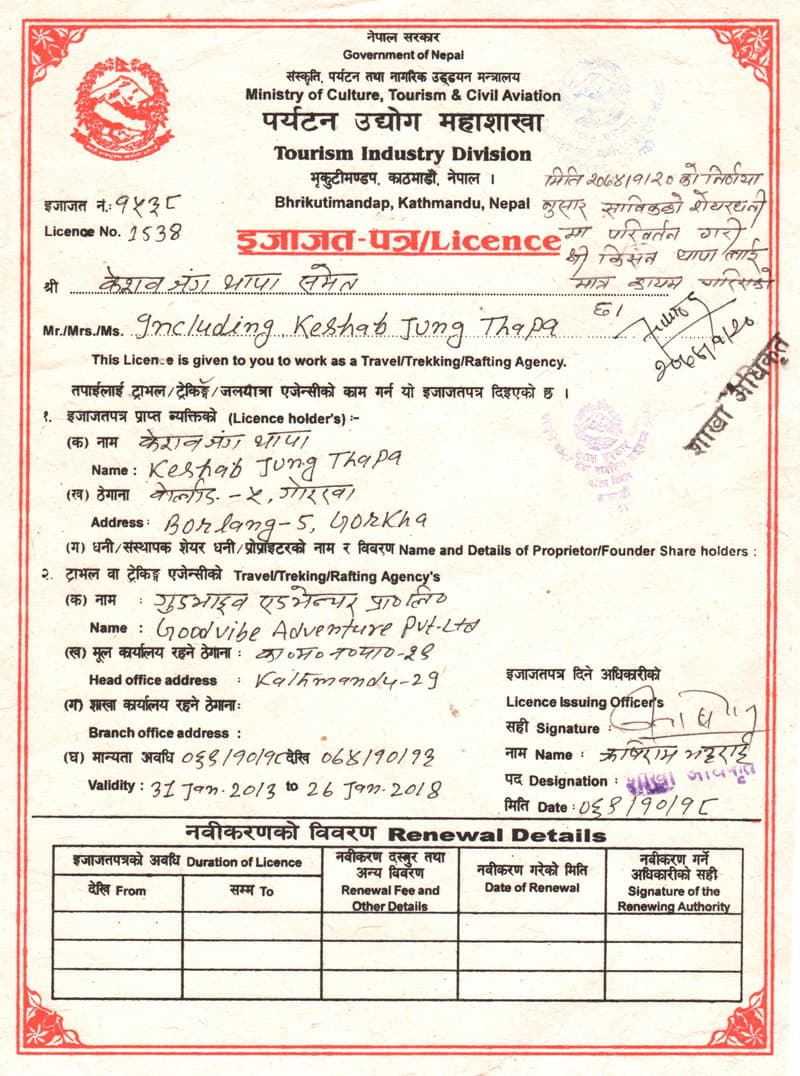 नेपाल सरकार
Government of Nepal
संस्कृति, पर्यटन तथा नागरिक उड्डयन मन्त्रालय
Ministry of Culture, Tourism & Civil Aviation
पर्यटन उद्योग महाशाखा
Tourism Industry Division
भृकुटीमण्डप, काठमाडौं, नेपाल ।
Bhrikutimandap, Kathmandu, Nepal
इजाजत नं.: १५३८
Licence No. 1538
इजाजत-पत्र/Licence
मिति २०६४/९/२० को निर्णया
नुसार साविकको शेयरधनी
मा परिवर्तन गरी
श्री किसन थापा लाई
मात्र कायम गरिएको
छ।
२०६४/९/२०
शाखा अधिकृत
श्री केशव जंग थापा समेत
Mr./Mrs./Ms. Including Keshab Jung Thapa
This Licence is given to you to work as a Travel/Trekking/Rafting Agency.
तपाईलाई ट्राभल/ट्रेकिङ्ग/जलयात्रा एजेन्सीको काम गर्न यो इजाजतपत्र दिइएको छ ।
१. इजाजतपत्र प्राप्त ब्यक्तिको (Licence holder's) :-
(क) नाम केशव जंग थापा
Name : Keshab Jung Thapa
(ख) ठेगाना बोर्लाङ - ५, गोरखा
Address : Borlang-5, Gorkha
(ग) धनी/संस्थापक शेयर धनी/प्रोप्राइटरको नाम र विवरण Name and Details of Proprietor/Founder Share holders :
२. ट्राभल वा ट्रेकिङ्ग एजेन्सीको Travel/Treking/Rafting Agency's
(क) नाम : गुडभाइव एडभेन्चर प्रा०लि०
Name : Goodvibe Adventure Pvt. Ltd
(ख) मूल कार्यालय रहने ठेगाना : का०म०न०पा०-२९
Head office address : Kathmandu-29
(ग) शाखा कार्यालय रहने ठेगाना:
Branch office address :
(घ) मान्यता अवधि ०६९/१०/१८ देखि ०७४/१०/१३
Validity : 31 Jan. 2013 to 26 Jan. 2018
इजाजतपत्र दिने अधिकारीको
Licence Issuing Officer's
सही Signature :
नाम Name : ऋषिराम भट्टराई
पद Designation : शाखा अधिकृत
मिति Date : ०६९/१०/१८
नवीकरणको विवरण Renewal Details
इजाजतपत्रको अवधि Duration of Licence
देखि From
सम्म To
नवीकरण दस्तुर तथा
अन्य विवरण
Renewal Fee and
Other Details
नवीकरण गरेको मिति
Date of Renewal
नवीकरण गर्ने
अधिकारीको सही
Signature of the
Renewing Authority